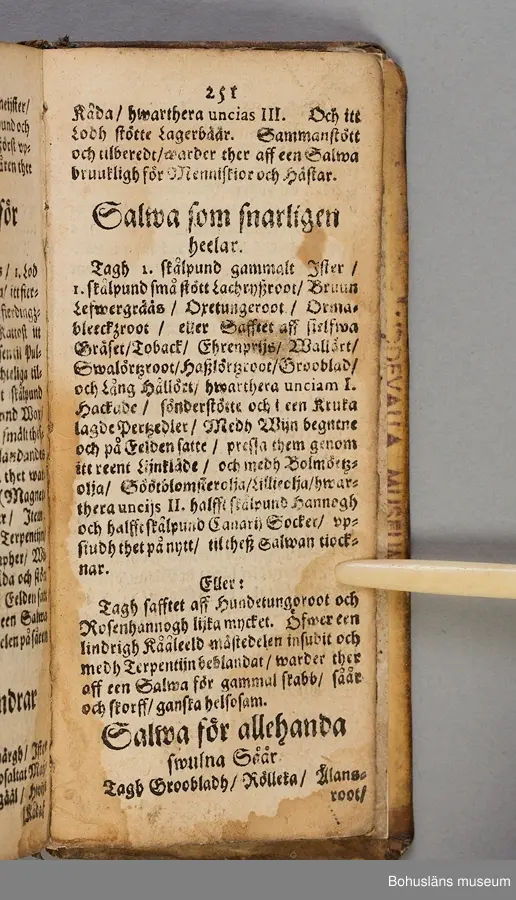 251
Kåda/ hwarthera uncias III. Och itt
Lodh stötte Lagerbäär. Sammanstött
och tilberedt/warder ther aff een Salwa
bruukligh för Menniskior och Hästar.
Salwa som snarligen
heelar.
Tagh 1. skålpund gammalt Ister /
1. skålpund små stött Lachrytzroot/ Bruun
Lefwergrääs / Oxetungeroot / Orma-
bleeckzroot / eller Safftet aff sielfwa
Gräset/Toback/ Ehrenprijs/ Wallört/
Swalörtzroot/Haßlörtzroot/Grooblad/
och Lång Hållört/ hwarthera unciam I.
Hackade / sönderstötte och i een Kruka
lagde Pertzedler/ Medh Wijn begutne
och på Eelden satte / pressa them genom
itt reent Lijnkläde / och medh Bolmörtz-
olja/ Söötblomsterolja/Lilieolja/hwar-
thera uncijs II. halfft skålpund Hannogh
och halfft skålpund Canarij Socker/ vp-
siudh thet på nytt/ til theß Salwan tiock-
nar.
Eller:
Tagh safftet aff Hundetungoroot och
Rosenhannogh lijka mycket. Öfwer een
lindrigh Kååleeld mästedelen insudit och
medh Terpentijn beblandat/ warder ther
aff een Salwa för gammul skabb/ såår
och skorff/ ganska helsosam.
Salwa för allehanda
swulna Såår.
Tagh Groobladh/ Rölleka/ Ålans-
root/
UDDEVALLA MUSEUM
Bohusläns museum